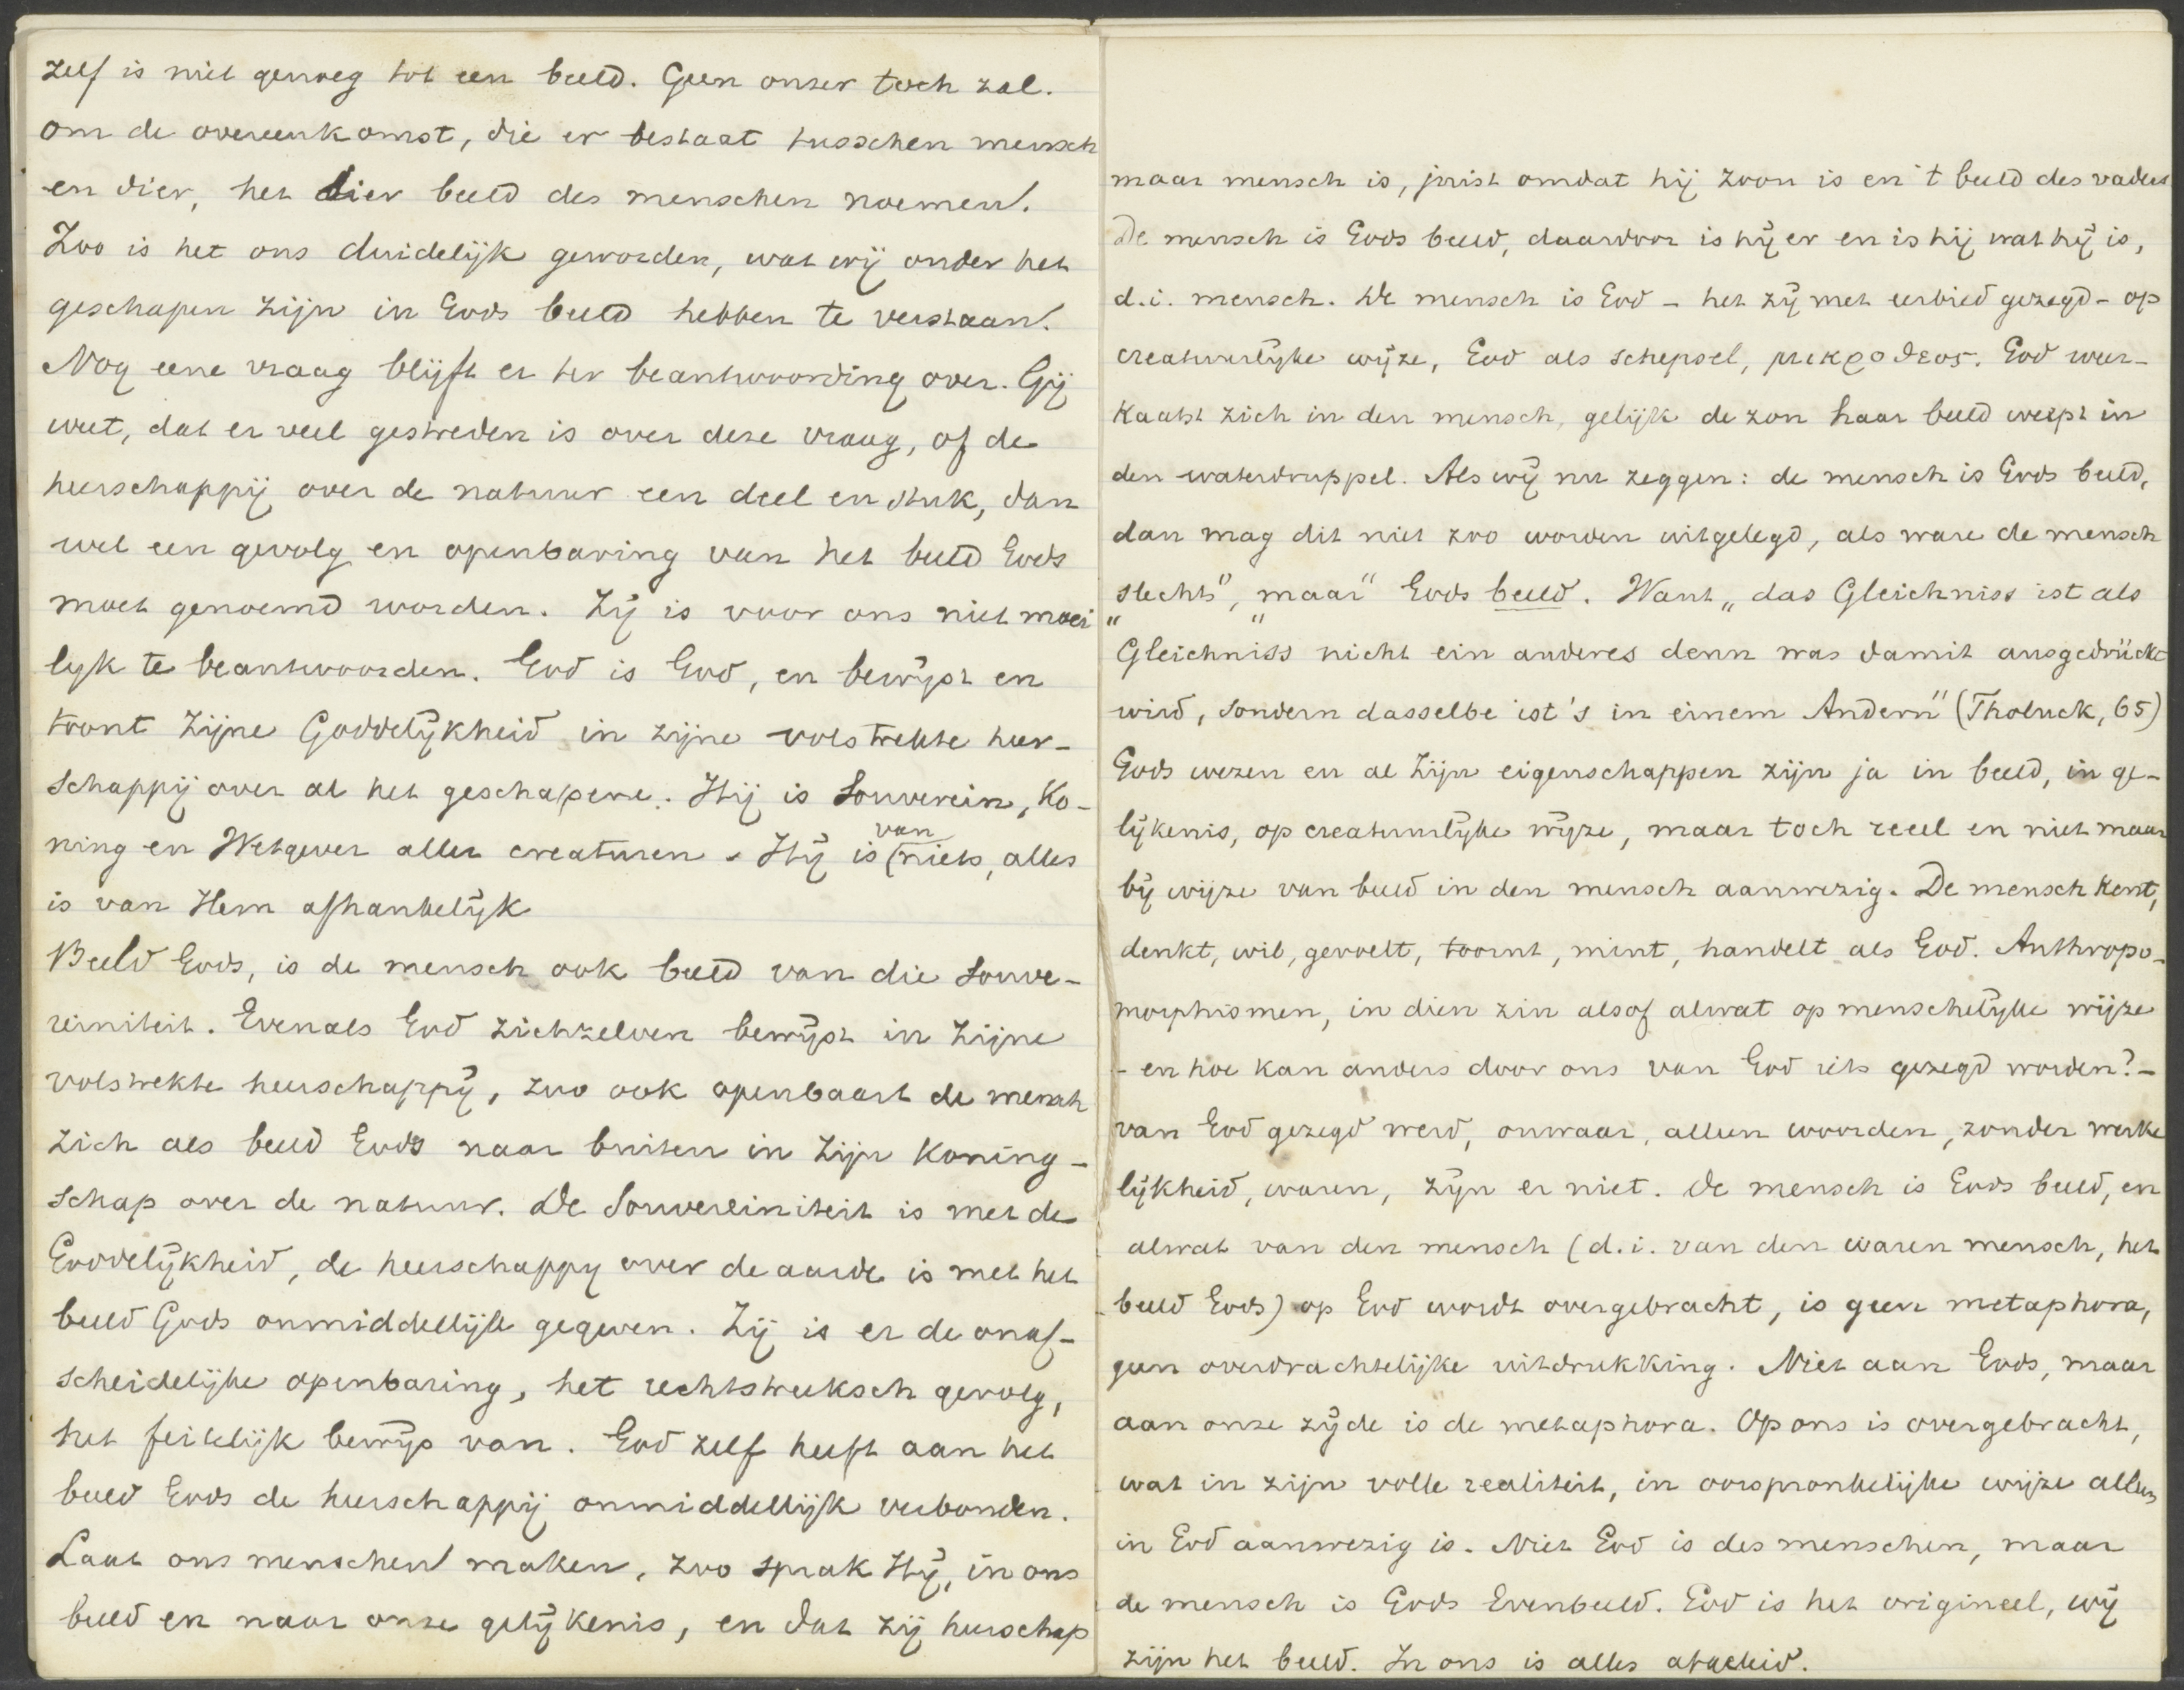 zelf is niet genoeg tot een beeld. Geen onzer toch zal.
om de overeenkomst, die er bestaat tusschen mensch
en dier, het dier beeld des menschen noemen.
Zoo is het ons duidelijk geworden, wat wij onder het
geschapen zijn in Gods beeld hebben te verstaan.
Nog eene vraag blijft er ter beantwoording over. Gij
weet, dat er veel gestreden is over deze vraag, of de
heerschappij over de natuur een deel en stuk, dan
wel een gevolg en openbaring van het beeld Gods
moet genoemd worden. Zij is voor ons niet moei
lyk te beantwoorden. God is God, en bewijst en
toont Zijne Goddelijkheid in zijne volstrekte heer-
schappij over al het geschapene. Hij is Souverein, Ko-
ning en Wetgever aller creaturen. Hij is van niets, alles
is van Hem afhankelijk
Beeld Gods, is de mensch ook beeld van die Souve-
reiniteit. Evenals God zichzelven bewijst in Zijne
volstrekte heerschappij, zoo ook openbaart de mensch
zich als beeld Gods naar buiten in zijn Koning-
schap over de natuur. De Souvereiniteit is met de
Goddelijkheid, de heerschappy over de aarde is met het
beeld Gods onmiddellijk gegeven. Zij is er de onaf-
scheidelijke openbaring, het rechtstreeksch gevolg,
het feitelijk bewijs van. God zelf heeft aan het
beeld Gods de heerschappij onmiddellijk verbonden.
Laat ons menschen maken, zoo sprak Hij, in ons
beeld en naar onze gelijkenis, en dat zij heerschap
maar mensch is, juist omdat hij zoon is en 't beeld des vaders
De mensch is Gods beeld, daardoor is hij er en is hij wat hij is,
d.i. mensch. De mensch is God - het zij met eerbied gezegd - op
creatuurlijke wijze, God als schepsel, μικροθεος. God weer-
kaatst zich in den mensch, gelijk de zon haar beeld werpt in
den waterdruppel. Als wij nu zeggen: de mensch is Gods beeld,
dan mag dit niet zoo worden uitgelegd, als ware de mensch
„slechts", „maar" Gods beeld. Want „das Gleichniss ist als
Gleichniss nicht ein anderes denn was damit ausgedrückt
wird, sondern dasselbe ist's in einem Andern" (Tholuck, 65)
Gods wezen en al Zijn eigenschappen zijn ja in beeld, in ge-
lijkenis, op creatuurlijke wijze, maar toch reeel en niet maar
bij wijze van beeld in den mensch aanwezig. De mensch kent,
denkt, wil, gevoelt, toornt, mint, handelt als God. Anthropo-
morphismen, in dien zin alsof alwat op menschelijke wijze
- en hoe kan anders door ons van God iets gezegd worden? -
van God gezegd werd, onwaar, alleen woorden, zonder werke
lijkheid, waren, zijn er niet. De mensch is Gods beeld, en
alwat van den mensch (d.i. van den waren mensch, het
beeld Gods) op God wordt overgebracht, is geen metaphora,
geen overdrachtelijke uitdrukking. Niet aan Gods, maar
aan onze zijde is de metaphora. Op ons is overgebracht,
wat in zijn volle realiteit, in oorspronkelijke wijze alleen
in God aanwezig is. Niet God is des menschen, maar
de mensch is Gods Evenbeeld. God is het origineel, wij
zijn het beeld. In ons is alles afgeleid.